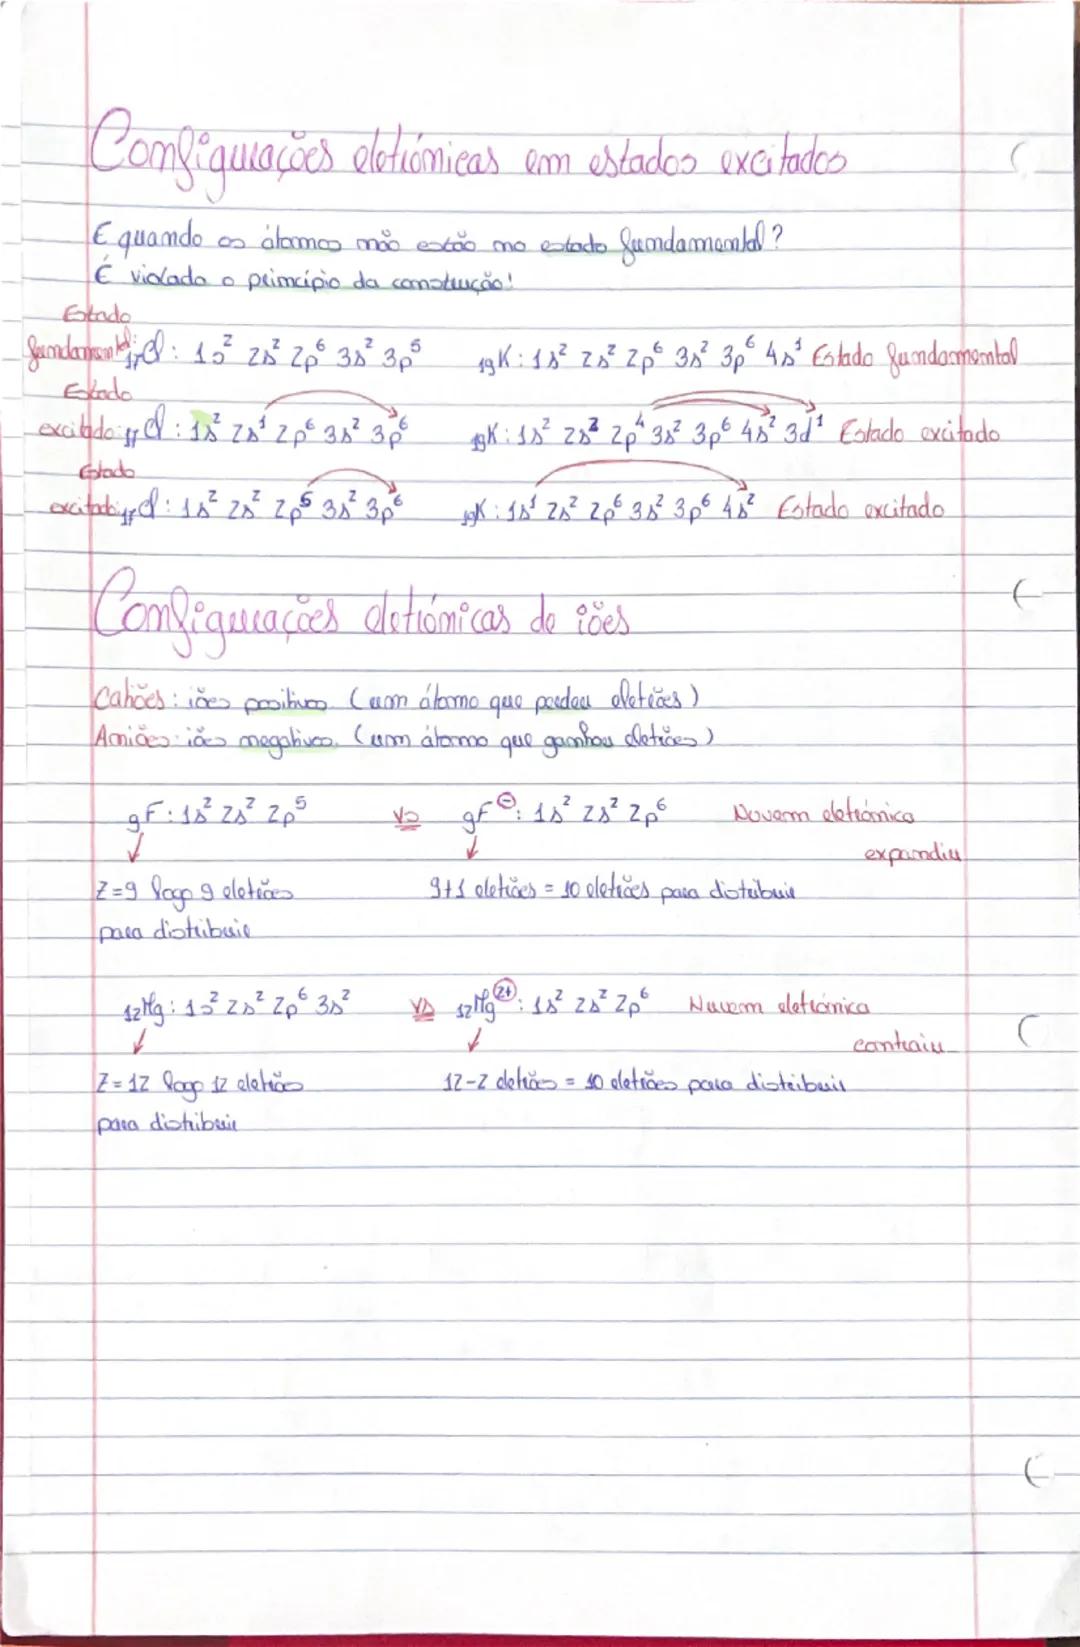 Configurações eletrónicas em estados excitados
E quando os átomos não estão no estado fundamental?
É violado o princípio da construção!
Estado
fundamental: ₁₇Cl: 1s² 2s² 2p⁶ 3s² 3p⁵ ₁₉K: 1s² 2s² 2p⁶ 3s² 3p⁶ 4s¹ Estado fundamental
Estado
excitado: ₁₇Cl: 1s² 2s¹ 2p⁶ 3s² 3p⁶ ₁₉K: 1s² 2s² 2p⁴ 3s² 3p⁶ 4s² 3d¹ Estado excitado
Estado
excitado: ₁₇Cl: 1s² 2s² 2p⁵ 3s² 3p⁶ ₁₉K: 1s¹ 2s² 2p⁶ 3s² 3p⁶ 4s² Estado excitado
Configurações eletrónicas de iões
Catiões: iões positivos (um átomo que perdeu eletrões)
Aniões: iões negativos (um átomo que ganhou eletrões)
₉F: 1s² 2s² 2p⁵ VS ₉F⁻: 1s² 2s² 2p⁶ Nuvem eletrónica
expandiu
Z=9 logo 9 eletrões 9+1 eletrões = 10 eletrões para distribuir
para distribuir
₁₂Mg: 1s² 2s² 2p⁶ 3s² VS ₁₂Mg²⁺: 1s² 2s² 2p⁶ Nuvem eletrónica
contraiu
Z=12 logo 12 eletrões 12-2 eletrões = 10 eletrões para distribuir
para distribuir